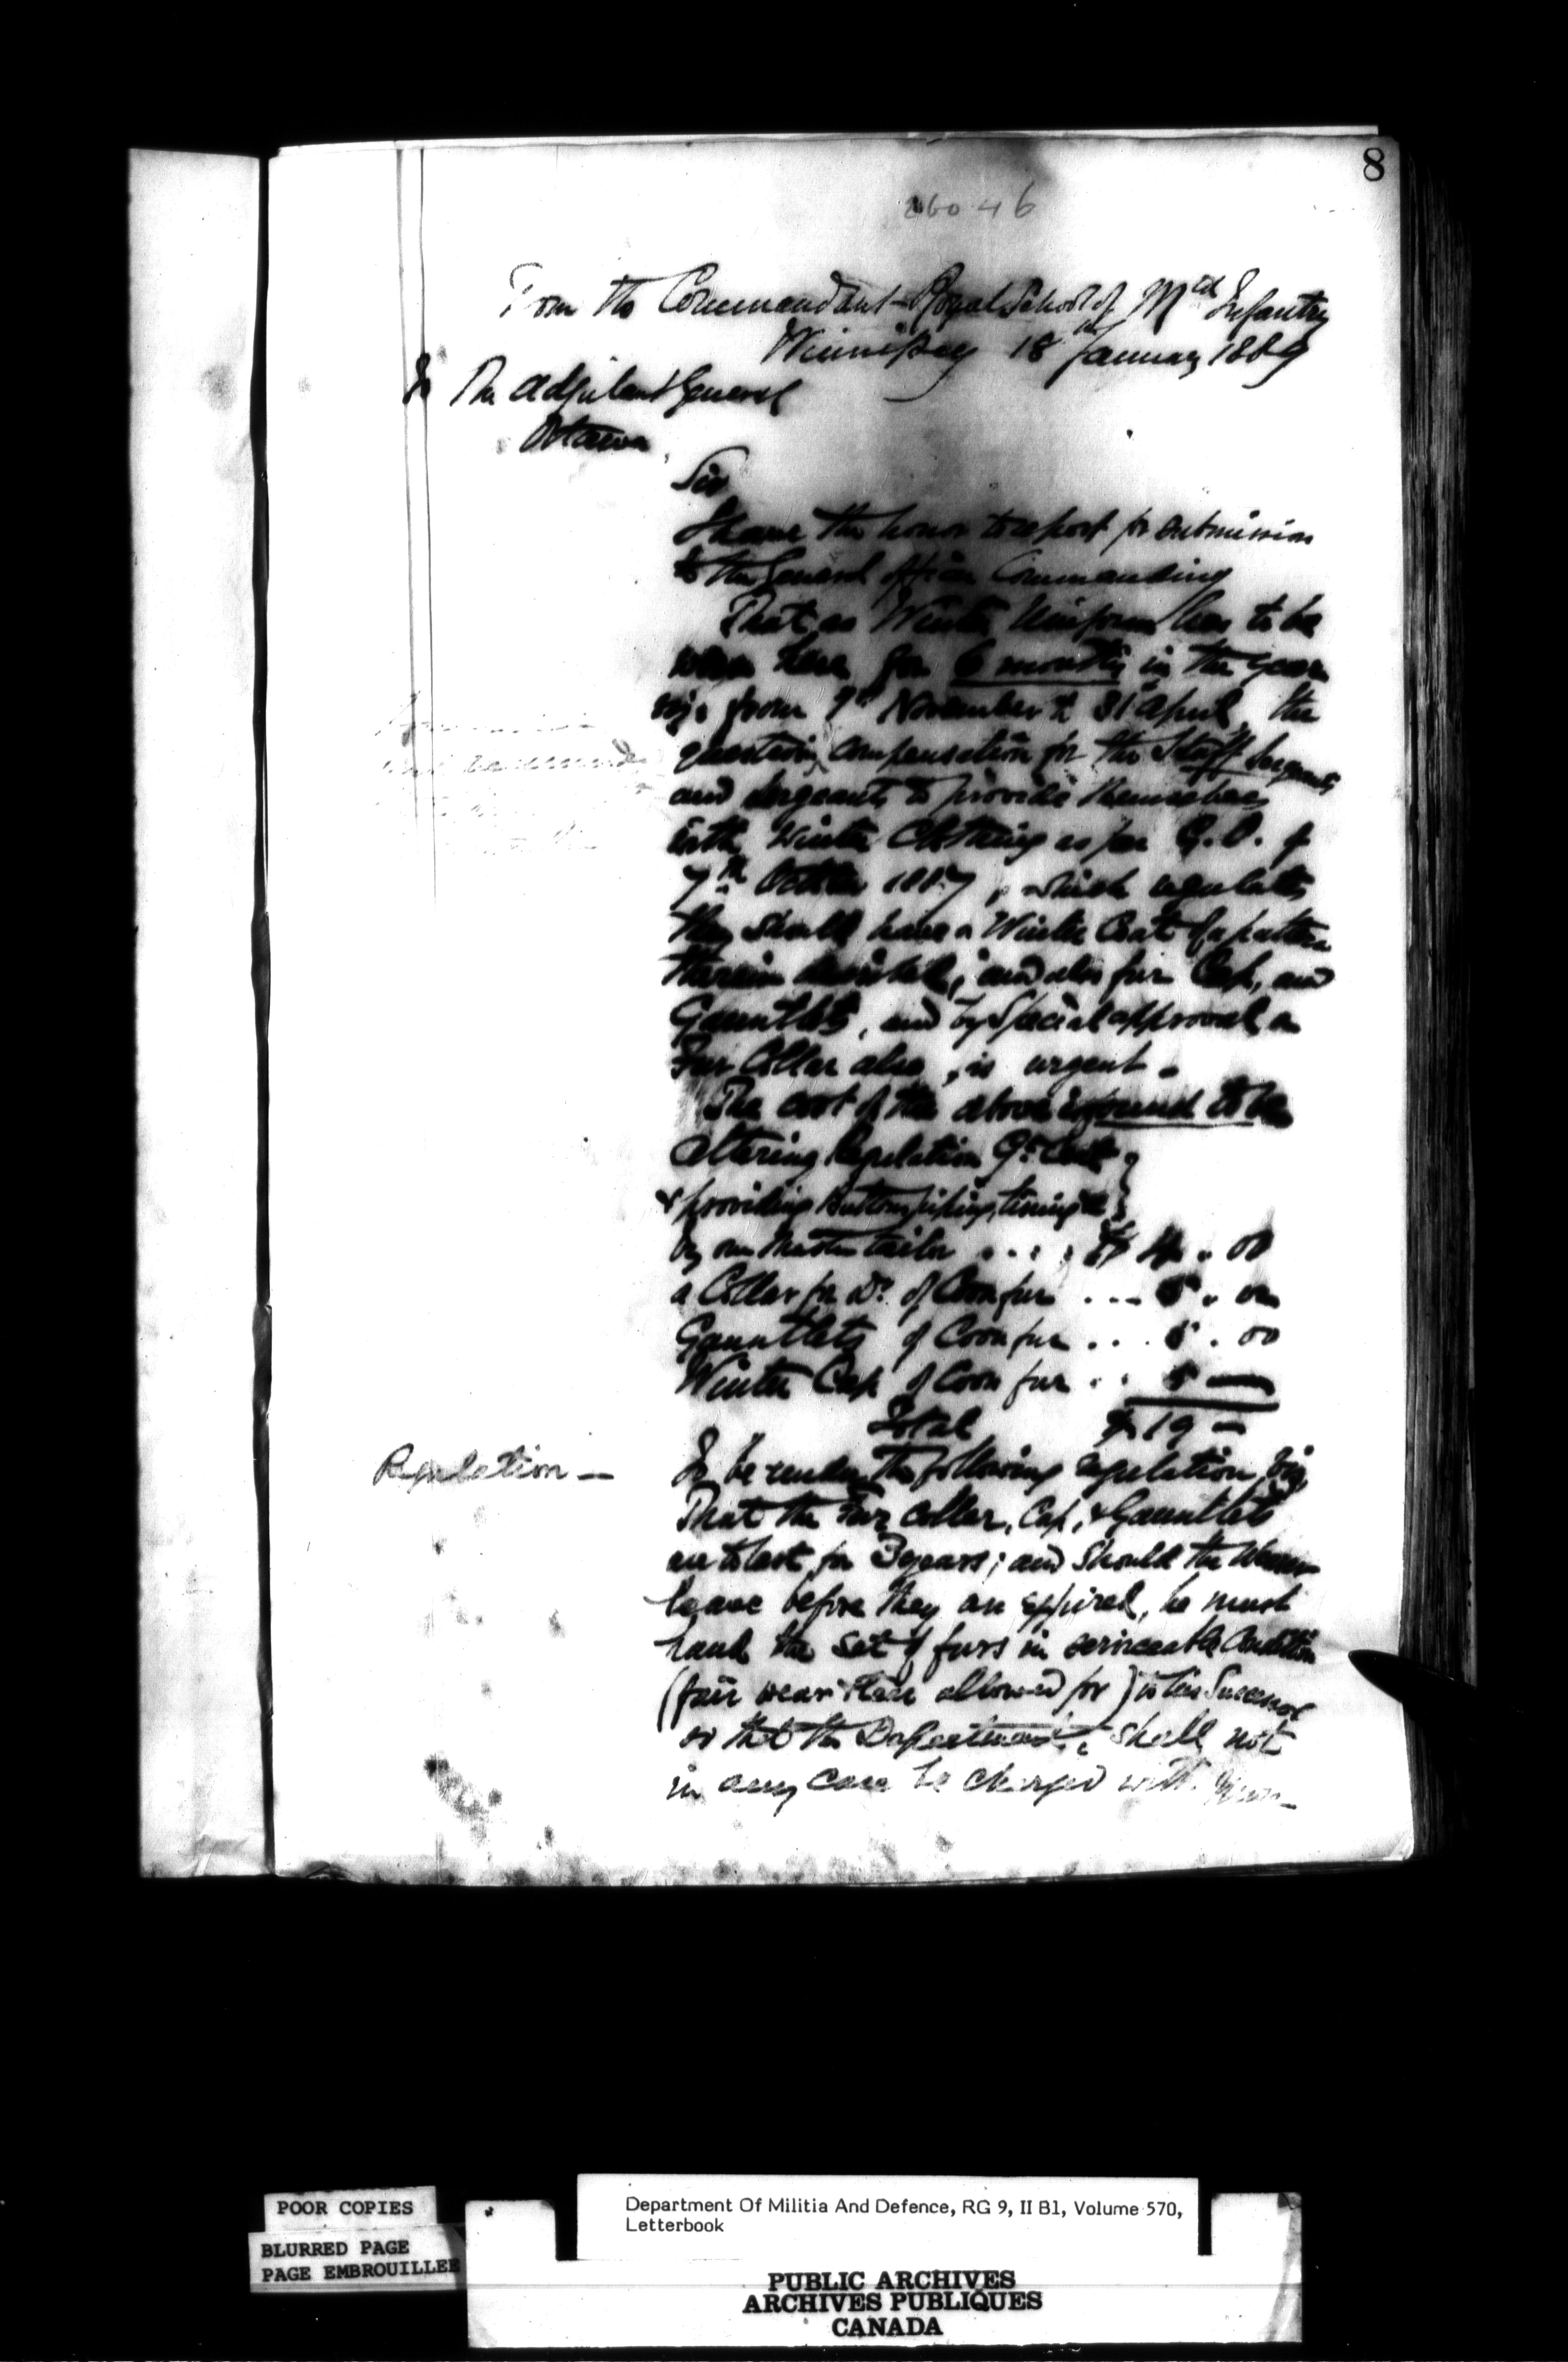 8
From the Commandant Royal School of Mtd Infantry
Winnipeg 18th January 1889
To The Adjutant General
Ottawa
Sir
I have the honor to report for submission
to the General Officer Commanding
That as Winter Uniform has to be
worn here for 6 months in the year
viz. from 1st November to 31st April, the
question compensation for the Staff Sergeants
and Sergeants to provide themselves
with Winter Clothing as per G.O. of
7th October 1887, which regulates
they shall have a Winter Coat of a pattern
therein described, and also fur Cap, and
Gauntlets, and by Special approval a
Fur Collar also, is urgent.
The cost of the above is found to be
Altering Regulation Gt Coat
& providing Buttons, piping, lining &c
by our Master tailor .... $4.00
a Collar for Do. of Coon fur ... 5.00
Gauntlets of Coon fur ... 5.00
Winter Cap of Coon fur .. 5 —
Total $19 —
Regulation —
To be under the following regulation, viz,
That the Fur Collar, Cap, & Gauntlets
are to last for 3 years; and should the Wearer
leave before they are expired, he must
hand the set of furs in serviceable Condition
(fair wear & tear allowed for) to his Successor
so that the Department shall not
in any case be charged with
POOR COPIES
BLURRED PAGE
PAGE EMBROUILLEE
Department Of Militia And Defence, RG 9, II B1, Volume 570,
Letterbook
PUBLIC ARCHIVES
ARCHIVES PUBLIQUES
CANADA